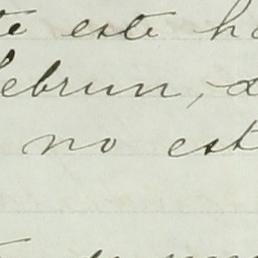 te este ha
lebrun, d
no est